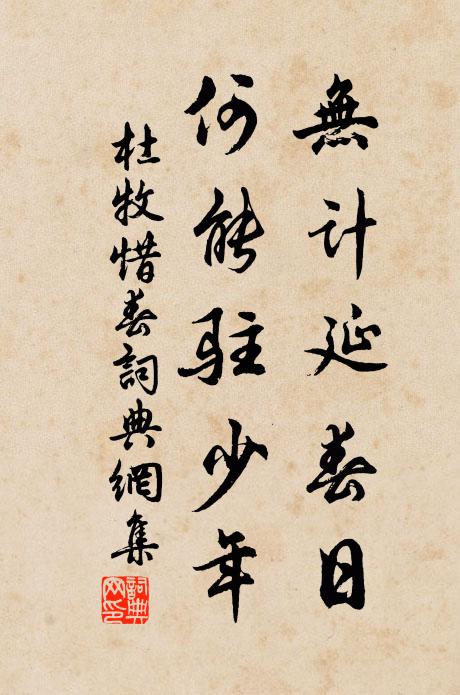 無計延春日
何能駐少年
杜牧惜春詞典網集
詞典
網印